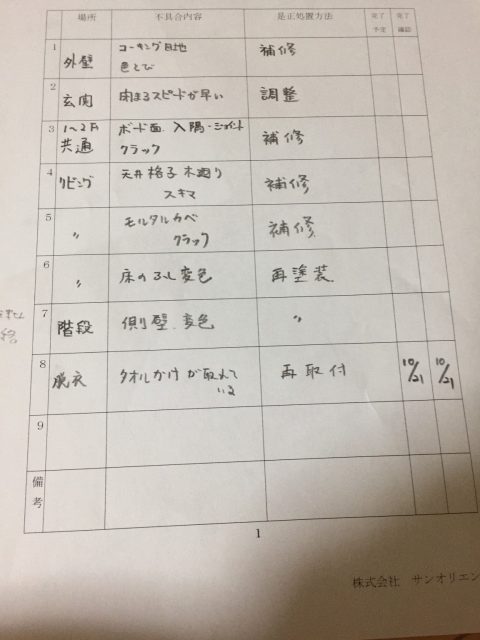 場所 不具合内容 是正処置方法 完了予定 完了確認
1 外壁 コーキング目地 補修
色とび
2 玄関 閉まるスピードが早い 調整
3 1〜2F ボード面、入隅・ジョイント 補修
共通 クラック
4 リビング 天井格子木廻り 補修
スキマ
5 〃 モルタルカベ 補修
クラック
6 〃 床の変色 再塗装
7 階段 側壁、変色 〃
8 脱衣 タオルかけが取れて 再取付 10/21 10/21
いる
9
備考
1
株式会社 サンオリエン